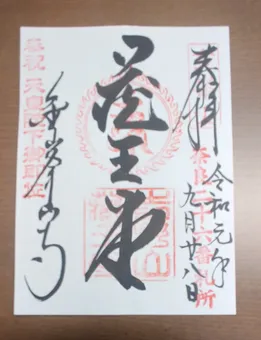 奉拝
奈良二十六番札所
令和元年
九月廿八日
蔵王堂
奉祝 天皇陛下御即位
金峯山寺